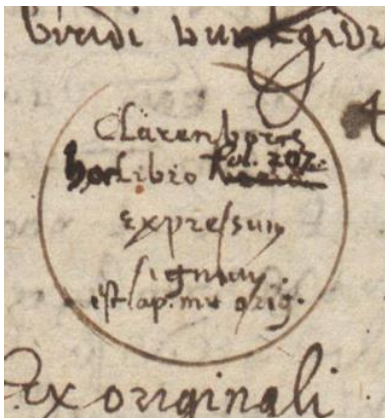 Clarenborts
hoc libro fol. 207.
expressum
signum.
est ap. me orig.
Ex originali